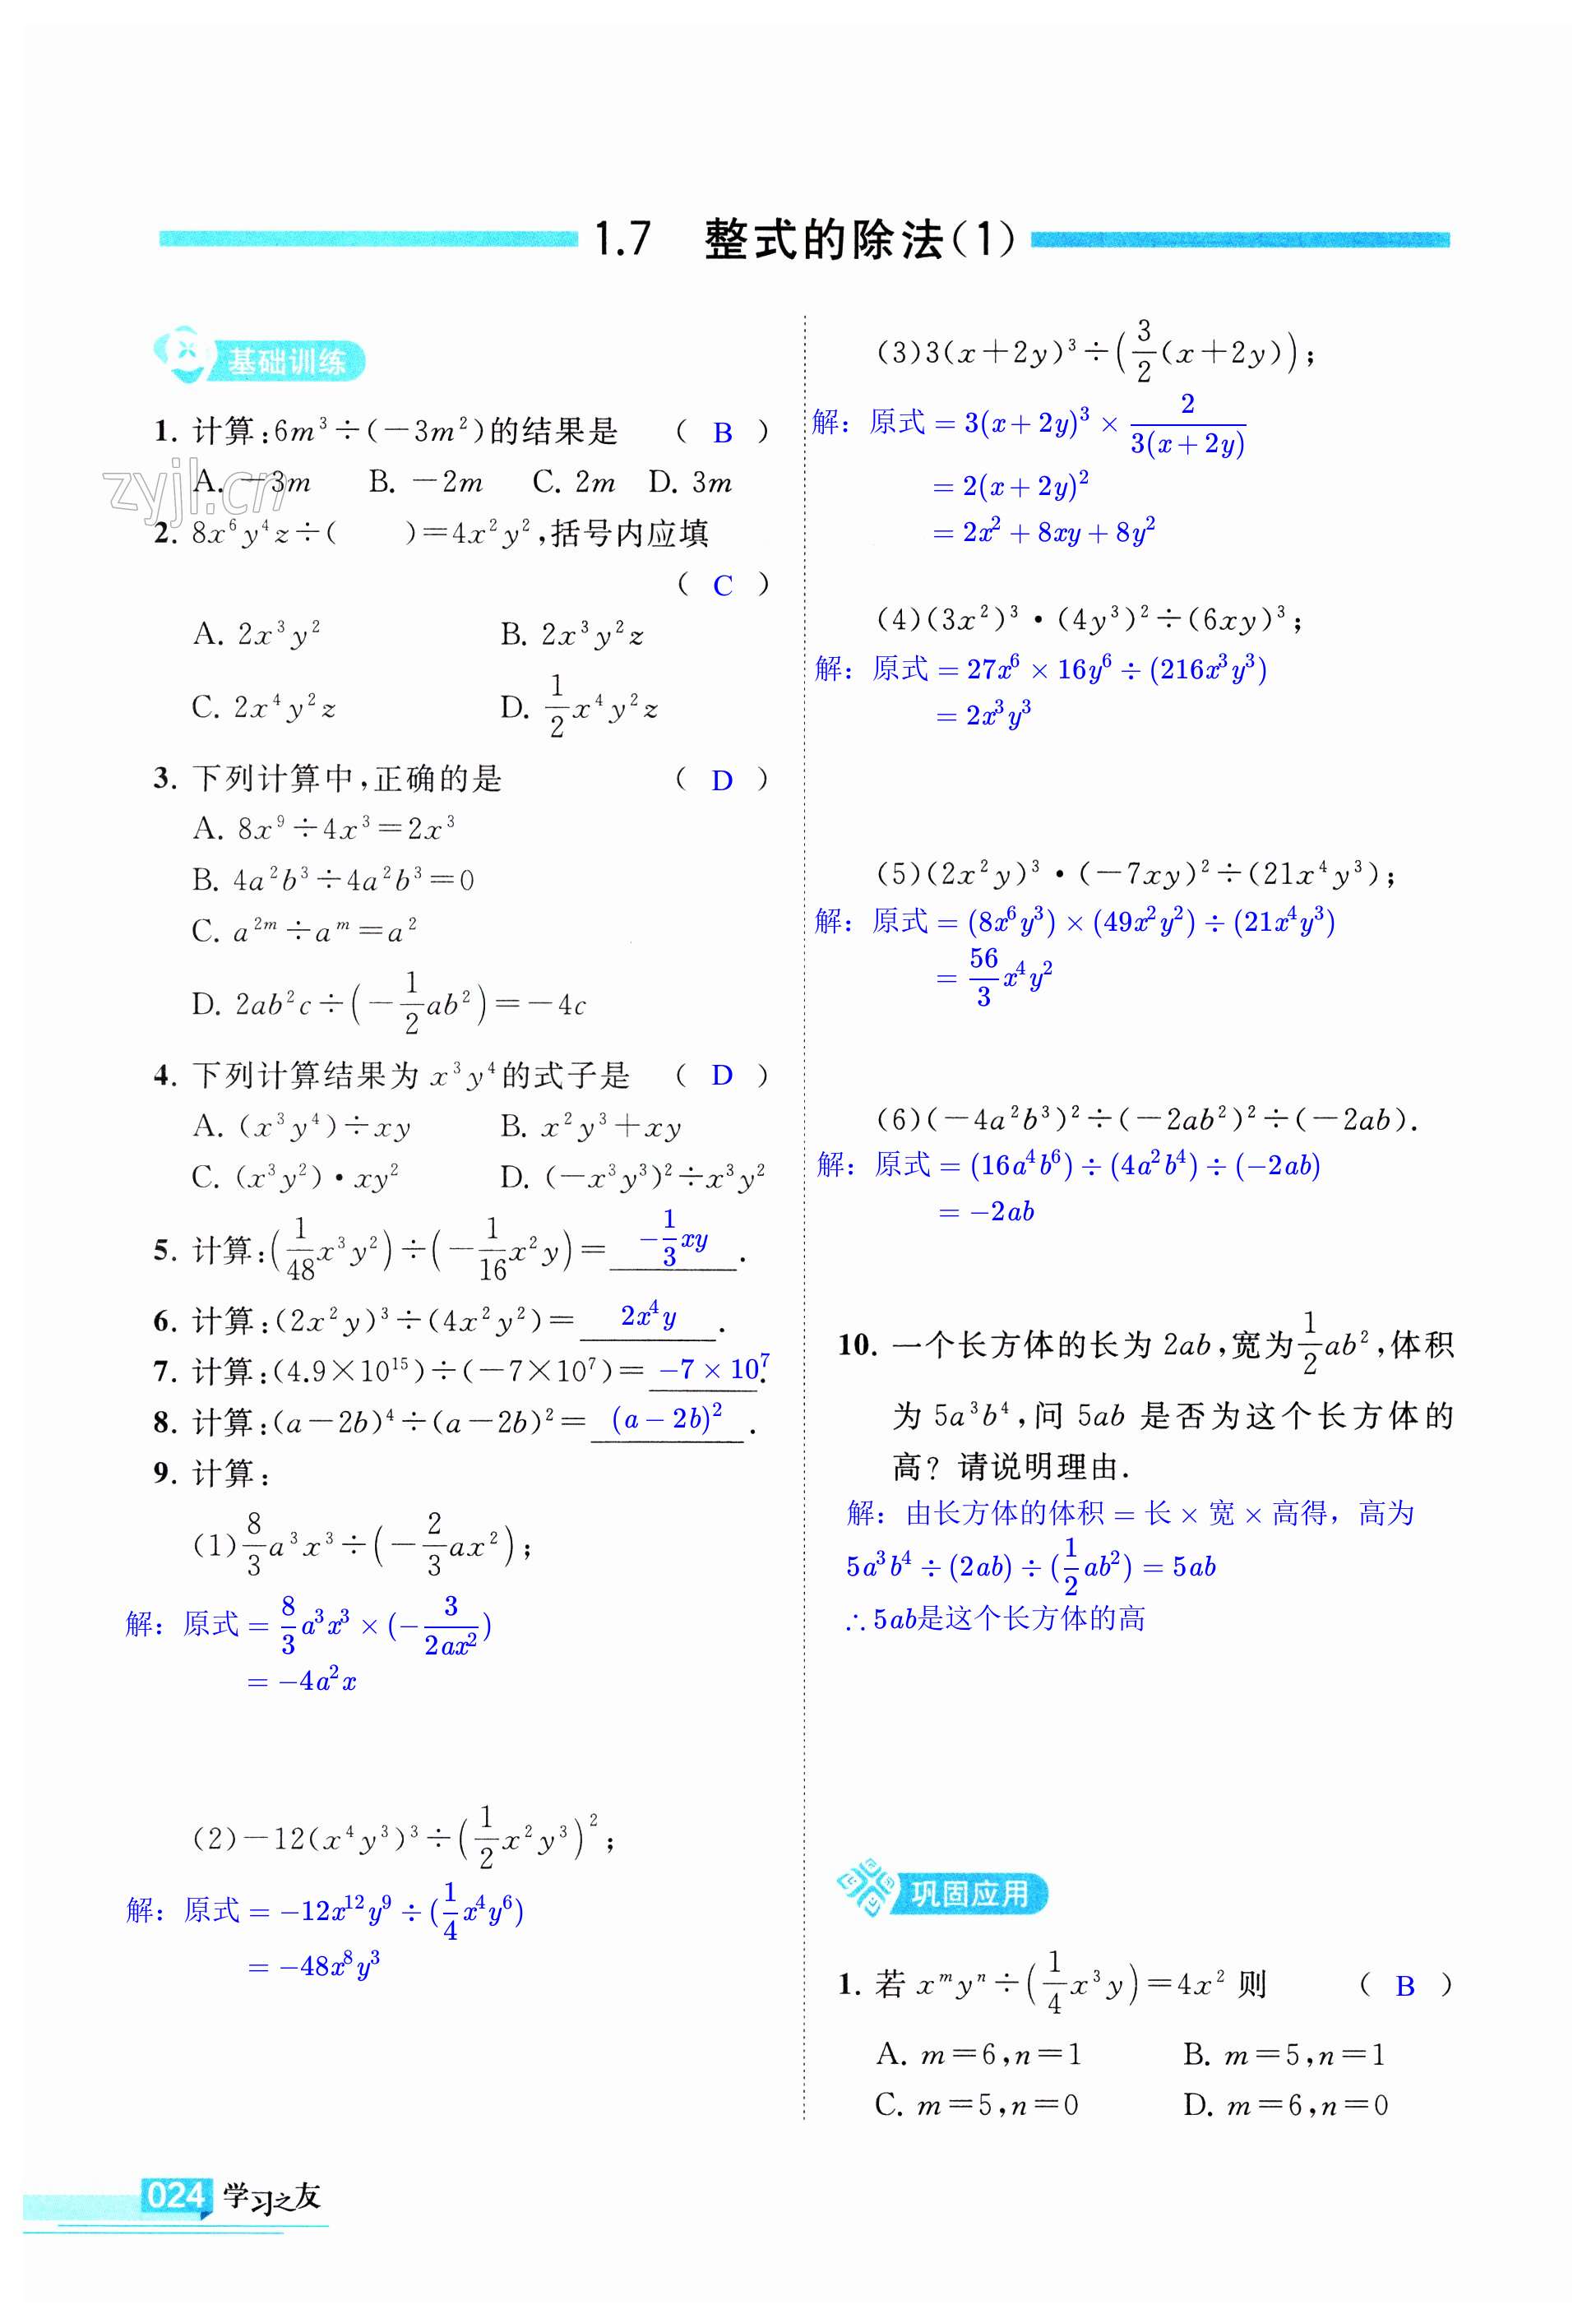 1.7 整式的除法(1)
基础训练
1. 计算:6m³÷(-3m²)的结果是 ( B )
A. -3m B. -2m C. 2m D. 3m
zyjl.cn
2. 8x⁶y⁴z÷( )=4x²y²,括号内应填
( C )
A. 2x³y² B. 2x³y²z
C. 2x⁴y²z D. 1/2 x⁴y²z
3. 下列计算中,正确的是 ( D )
A. 8x⁹÷4x³=2x³
B. 4a²b³÷4a²b³=0
C. a²ᵐ÷aᵐ=a²
D. 2ab²c÷(-1/2 ab²)=-4c
4. 下列计算结果为 x³y⁴的式子是 ( D )
A. (x³y⁴)÷xy B. x²y³+xy
C. (x³y²)•xy² D. (-x³y³)²÷x³y²
5. 计算:(1/48 x³y²)÷(-1/16 x²y)= -1/3 xy .
6. 计算:(2x²y)³÷(4x²y²)= 2x⁴y .
7. 计算:(4.9×10¹⁵)÷(-7×10⁷)= -7×10⁷.
8. 计算:(a-2b)⁴÷(a-2b)²= (a-2b)² .
9. 计算:
(1)8/3 a³x³÷(-2/3 ax²);
解:原式=8/3 a³x³×(-3/(2ax²))
=-4a²x
(2)-12(x⁴y³)³÷(1/2 x²y³)²;
解:原式=-12x¹²y⁹÷(1/4 x⁴y⁶)
=-48x⁸y³
(3)3(x+2y)³÷(3/2 (x+2y));
解:原式=3(x+2y)³×2/(3(x+2y))
=2(x+2y)²
=2x²+8xy+8y²
(4)(3x²)³•(4y³)²÷(6xy)³;
解:原式=27x⁶×16y⁶÷(216x³y³)
=2x³y³
(5)(2x²y)³•(-7xy)²÷(21x⁴y³);
解:原式=(8x⁶y³)×(49x²y²)÷(21x⁴y³)
=56/3 x⁴y²
(6)(-4a²b³)²÷(-2ab²)²÷(-2ab).
解:原式=(16a⁴b⁶)÷(4a²b⁴)÷(-2ab)
=-2ab
10. 一个长方体的长为 2ab,宽为1/2 ab²,体积
为 5a³b⁴,问 5ab 是否为这个长方体的
高? 请说明理由.
解:由长方体的体积=长×宽×高得,高为
5a³b⁴÷(2ab)÷(1/2 ab²)=5ab
∴5ab是这个长方体的高
巩固应用
1. 若 xᵐyⁿ÷(1/4 x³y)=4x² 则 ( B )
A. m=6,n=1 B. m=5,n=1
C. m=5,n=0 D. m=6,n=0
024 学习之友